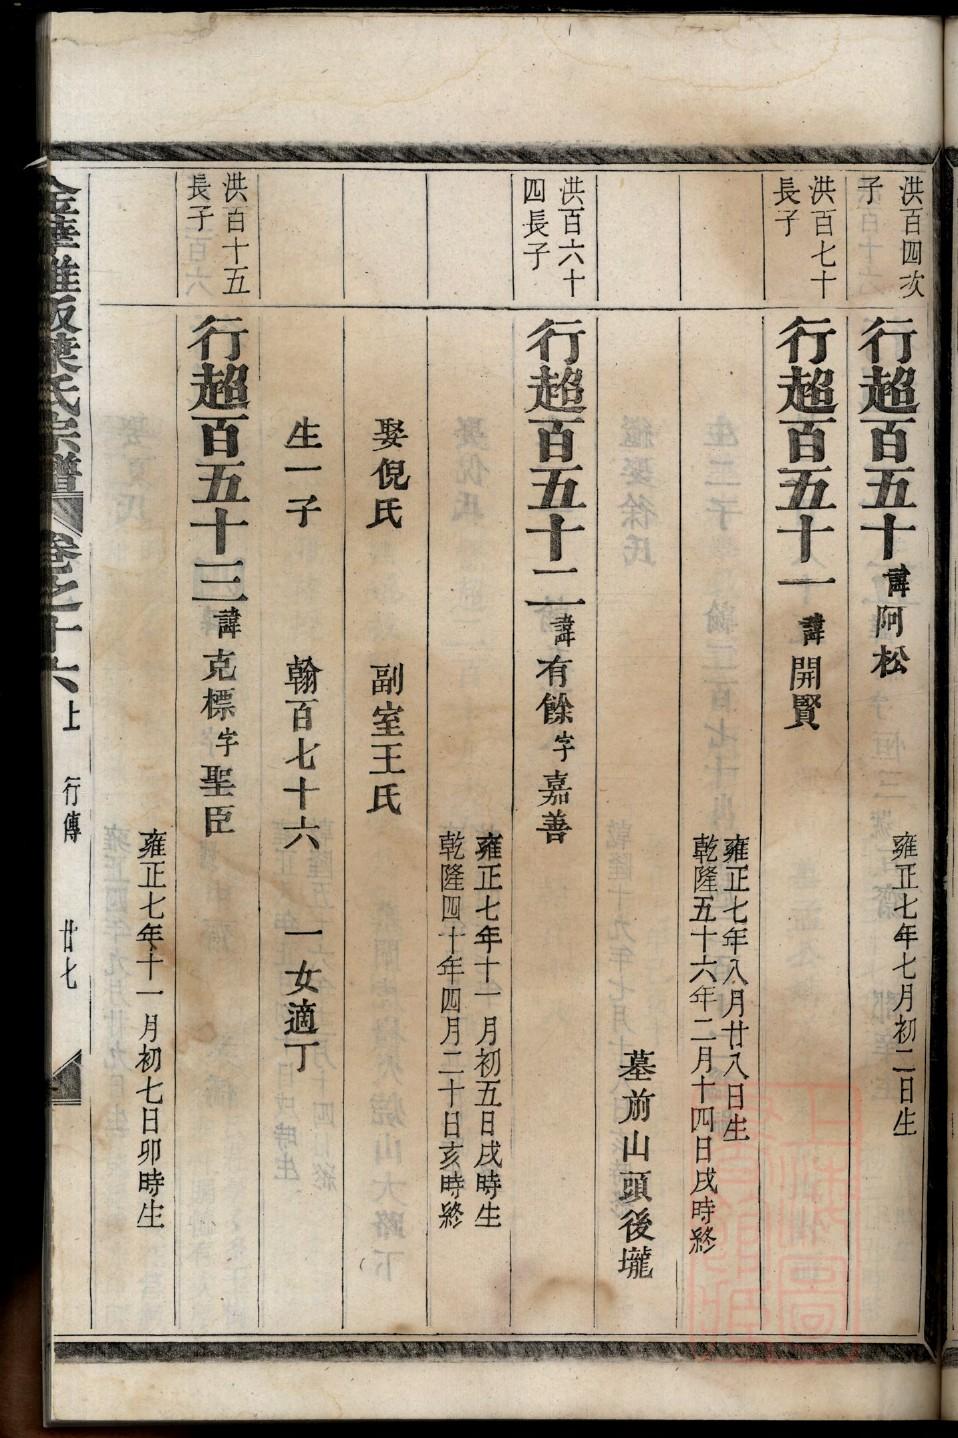 洪百四次
子
行超百五十諱阿松
雍正七年七月初二日生
洪百七十
長子
行超百五十一諱開賢
雍正七年八月廿八日生
乾隆五十六年二月十四日戌時終
墓前山頭後壠
洪百六十
四長子
行超百五十二諱有餘字嘉善
雍正七年十一月初五日戌時生
乾隆四十年四月二十日亥時終
娶倪氏 副室王氏
生一子 翰百七十六 一女適丁
洪百十五
長子
行超百五十三諱克標字聖臣
雍正七年十一月初七日卯時生
氏宗譜 卷之十六上 行傳 廿七